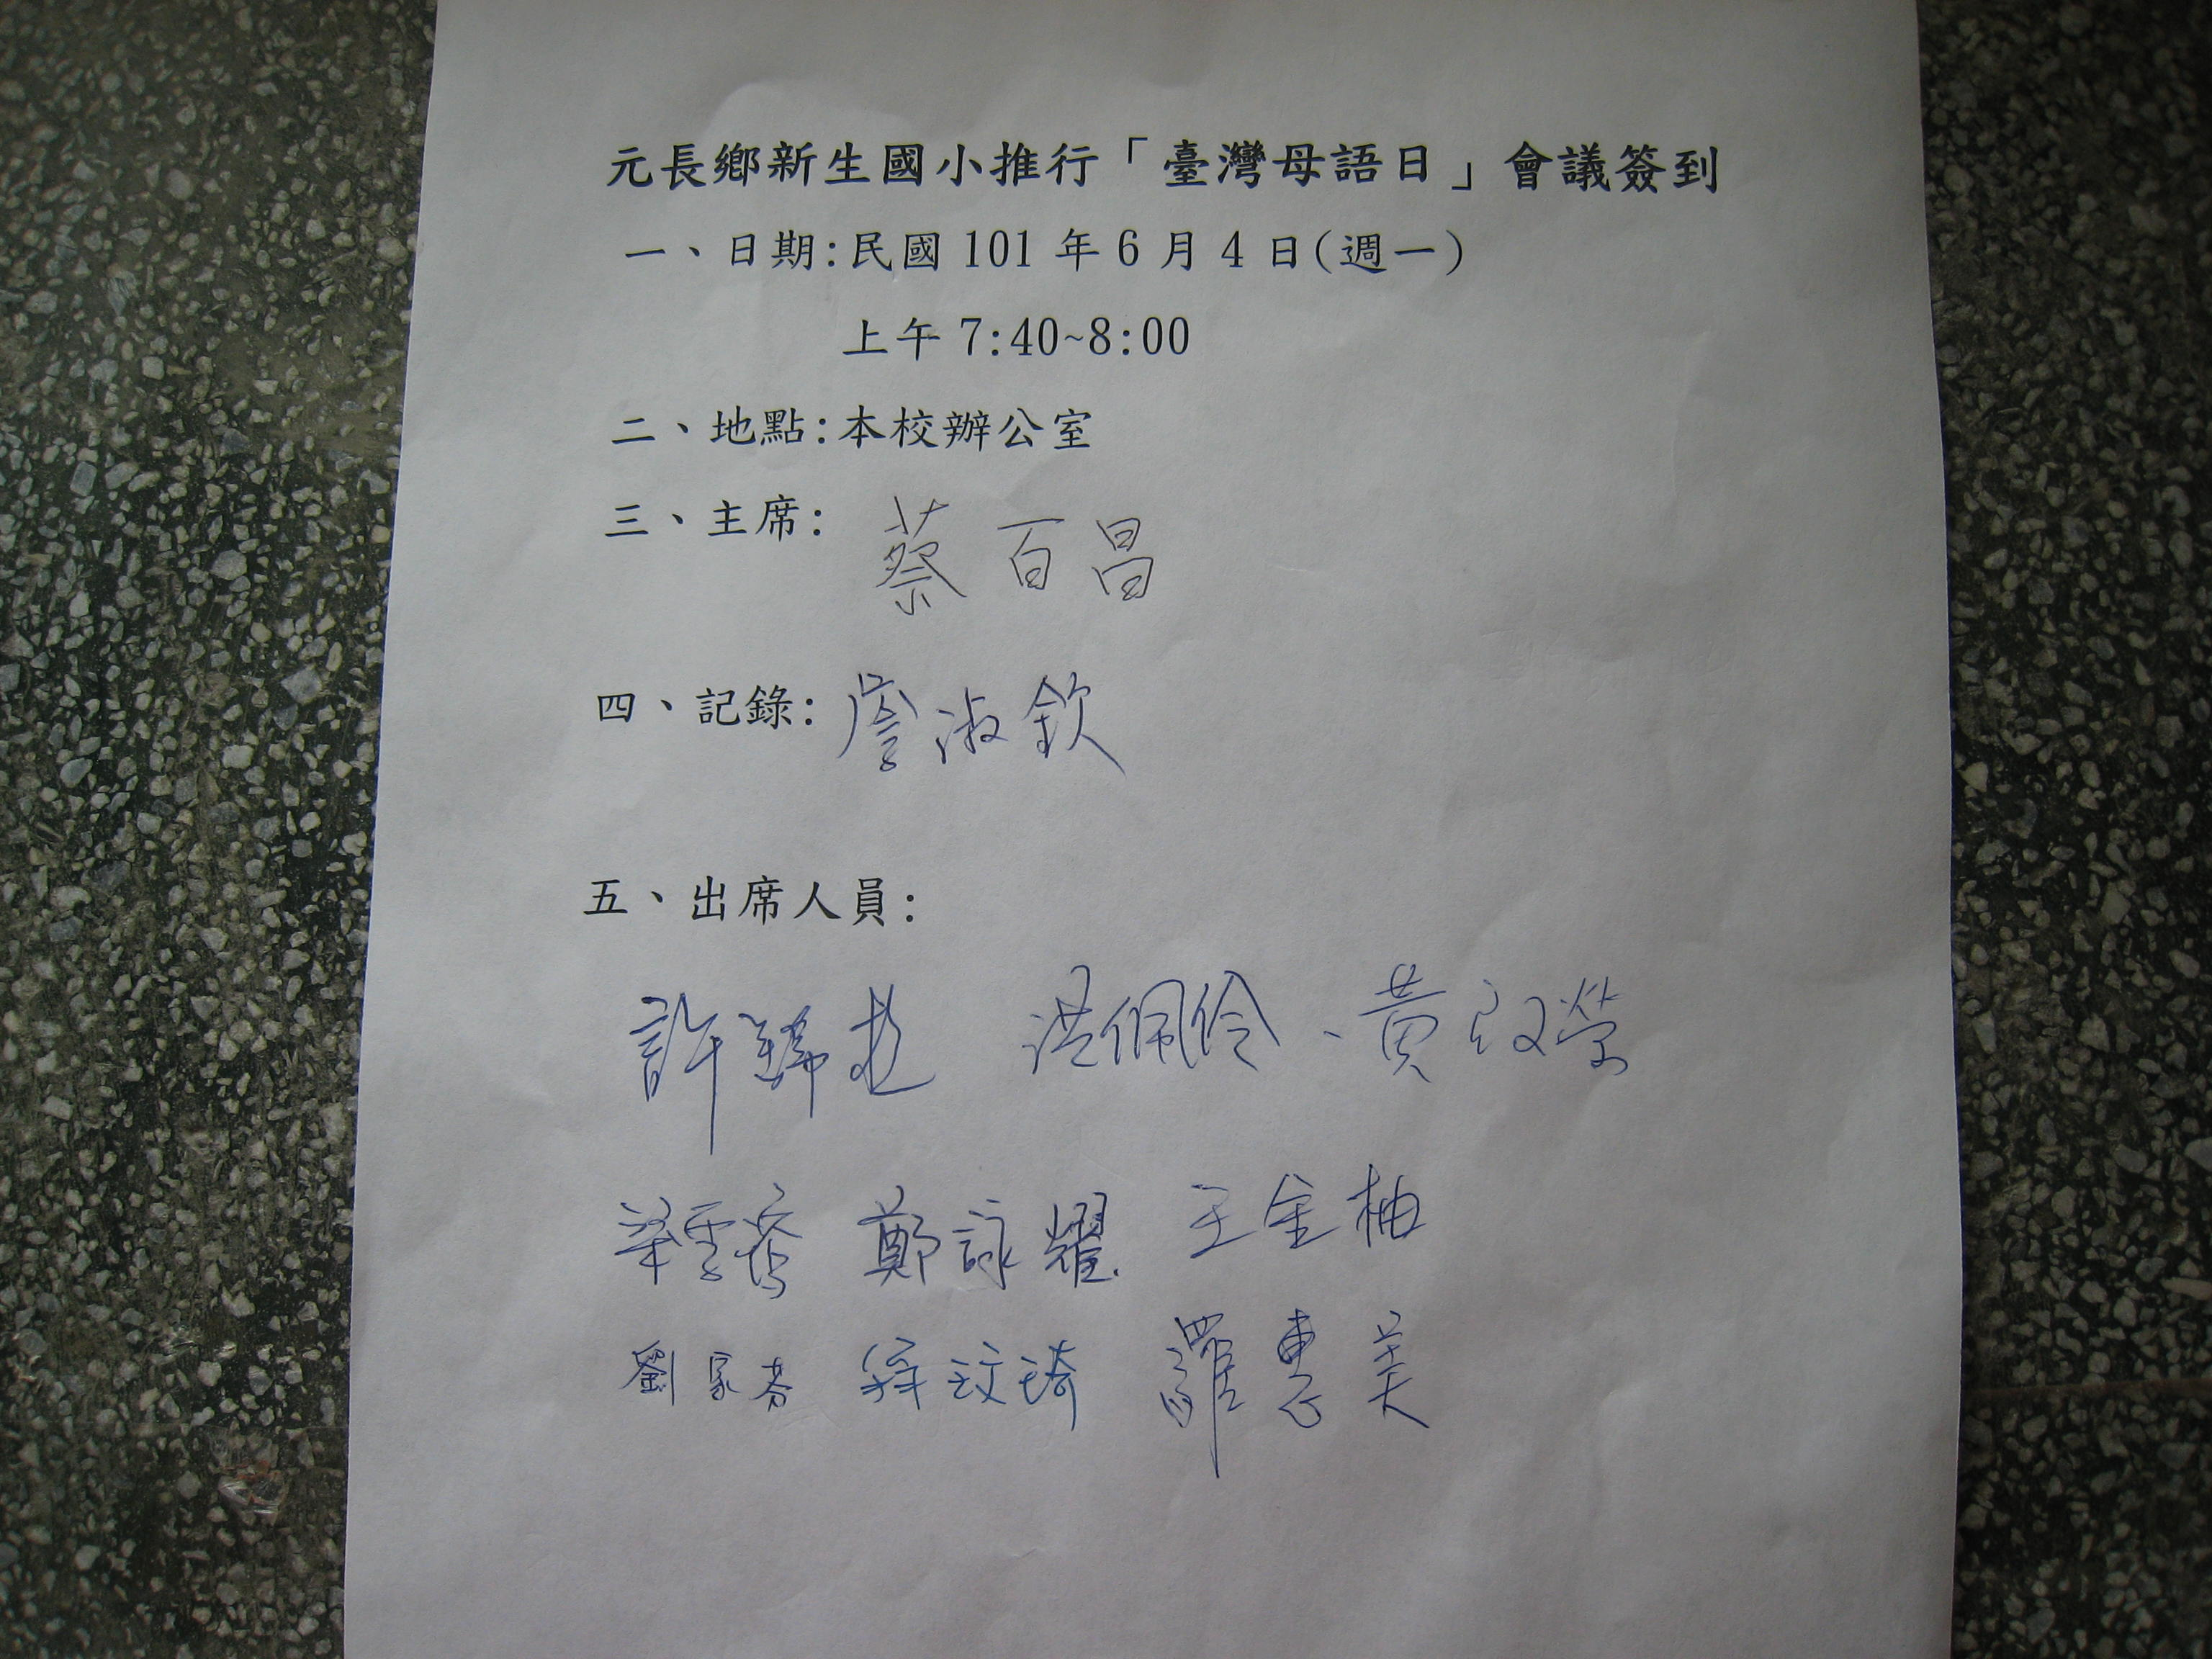 元長鄉新生國小推行「臺灣母語日」會議簽到
一、日期:民國 101 年 6 月 4 日(週一)
上午 7:40~8:00
二、地點:本校辦公室
三、主席: 蔡百昌
四、記錄: 詹淑欽
五、出席人員:
許 洪佩伶、黃
鄭詠耀 王金柚
劉家芬 玟琦 羅惠美